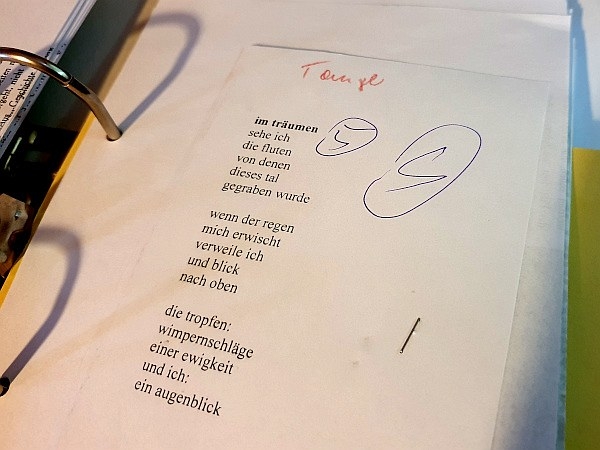 im träumen
sehe ich
die fluten
von denen
dieses tal
gegraben wurde
wenn der regen
mich erwischt
verweile ich
und blick
nach oben
die tropfen:
wimpernschläge
einer ewigkeit
und ich:
ein augenblick